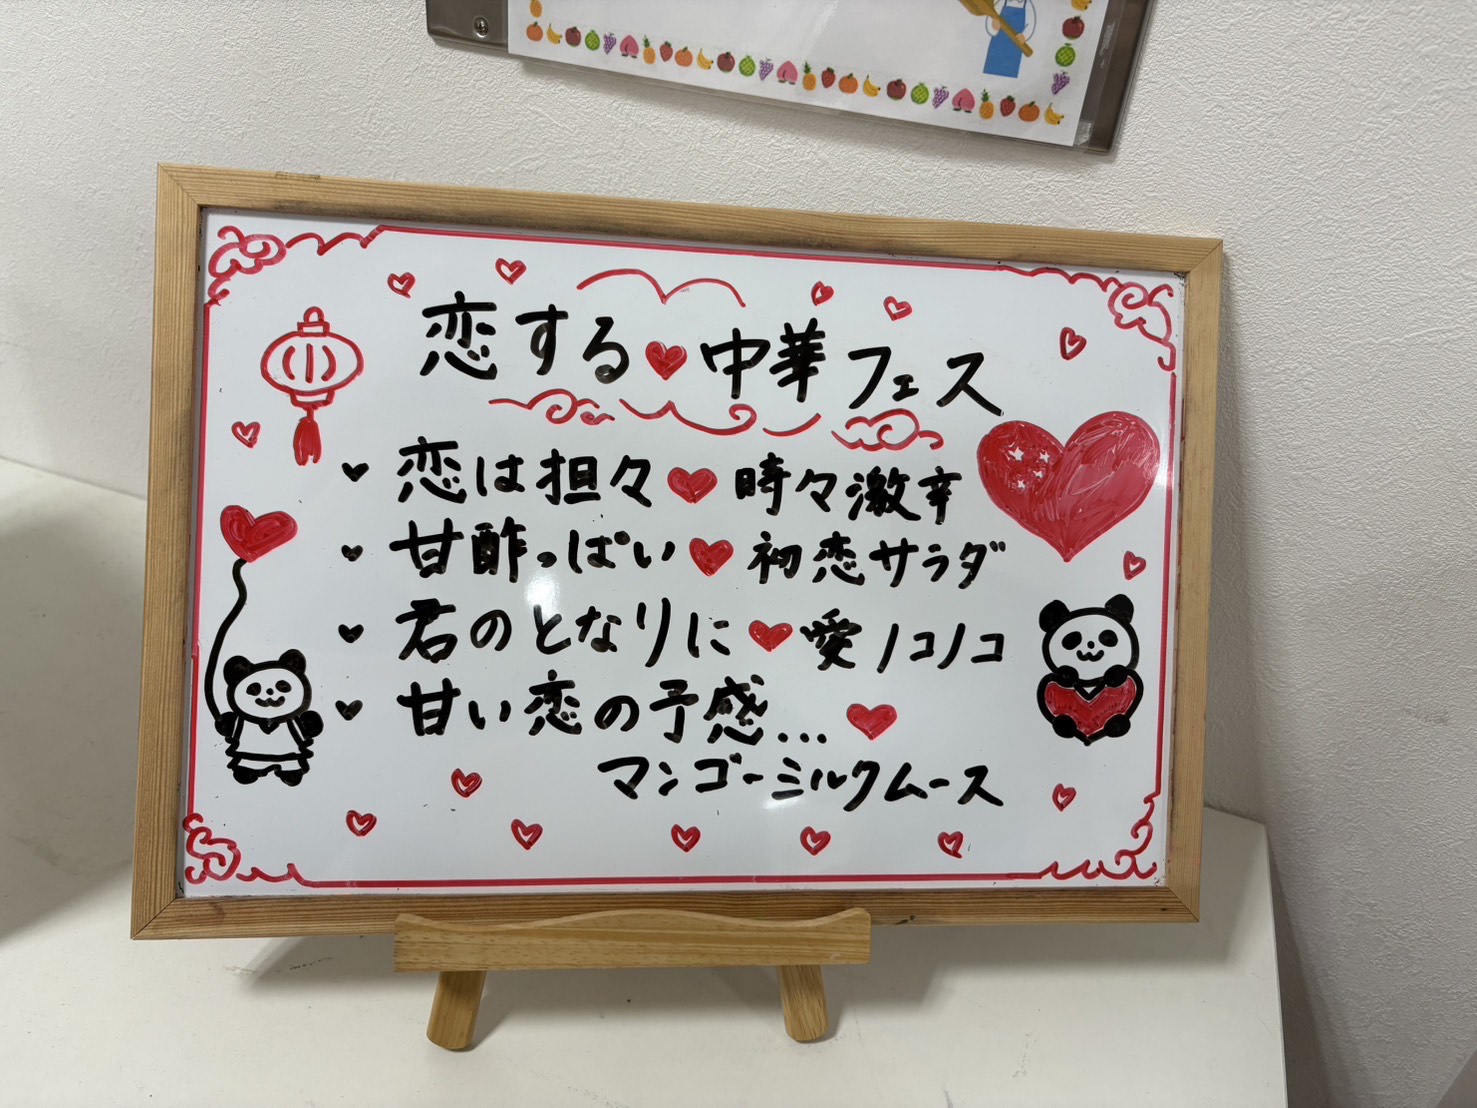 恋する♥中華フェス
♥ 恋は担々♥時々激辛
♥ 甘酢っぱい♥初恋サラダ
♥ 君のとなりに♥愛ノコノコ
♥ 甘い恋の予感…♥
マンゴーミルクムース